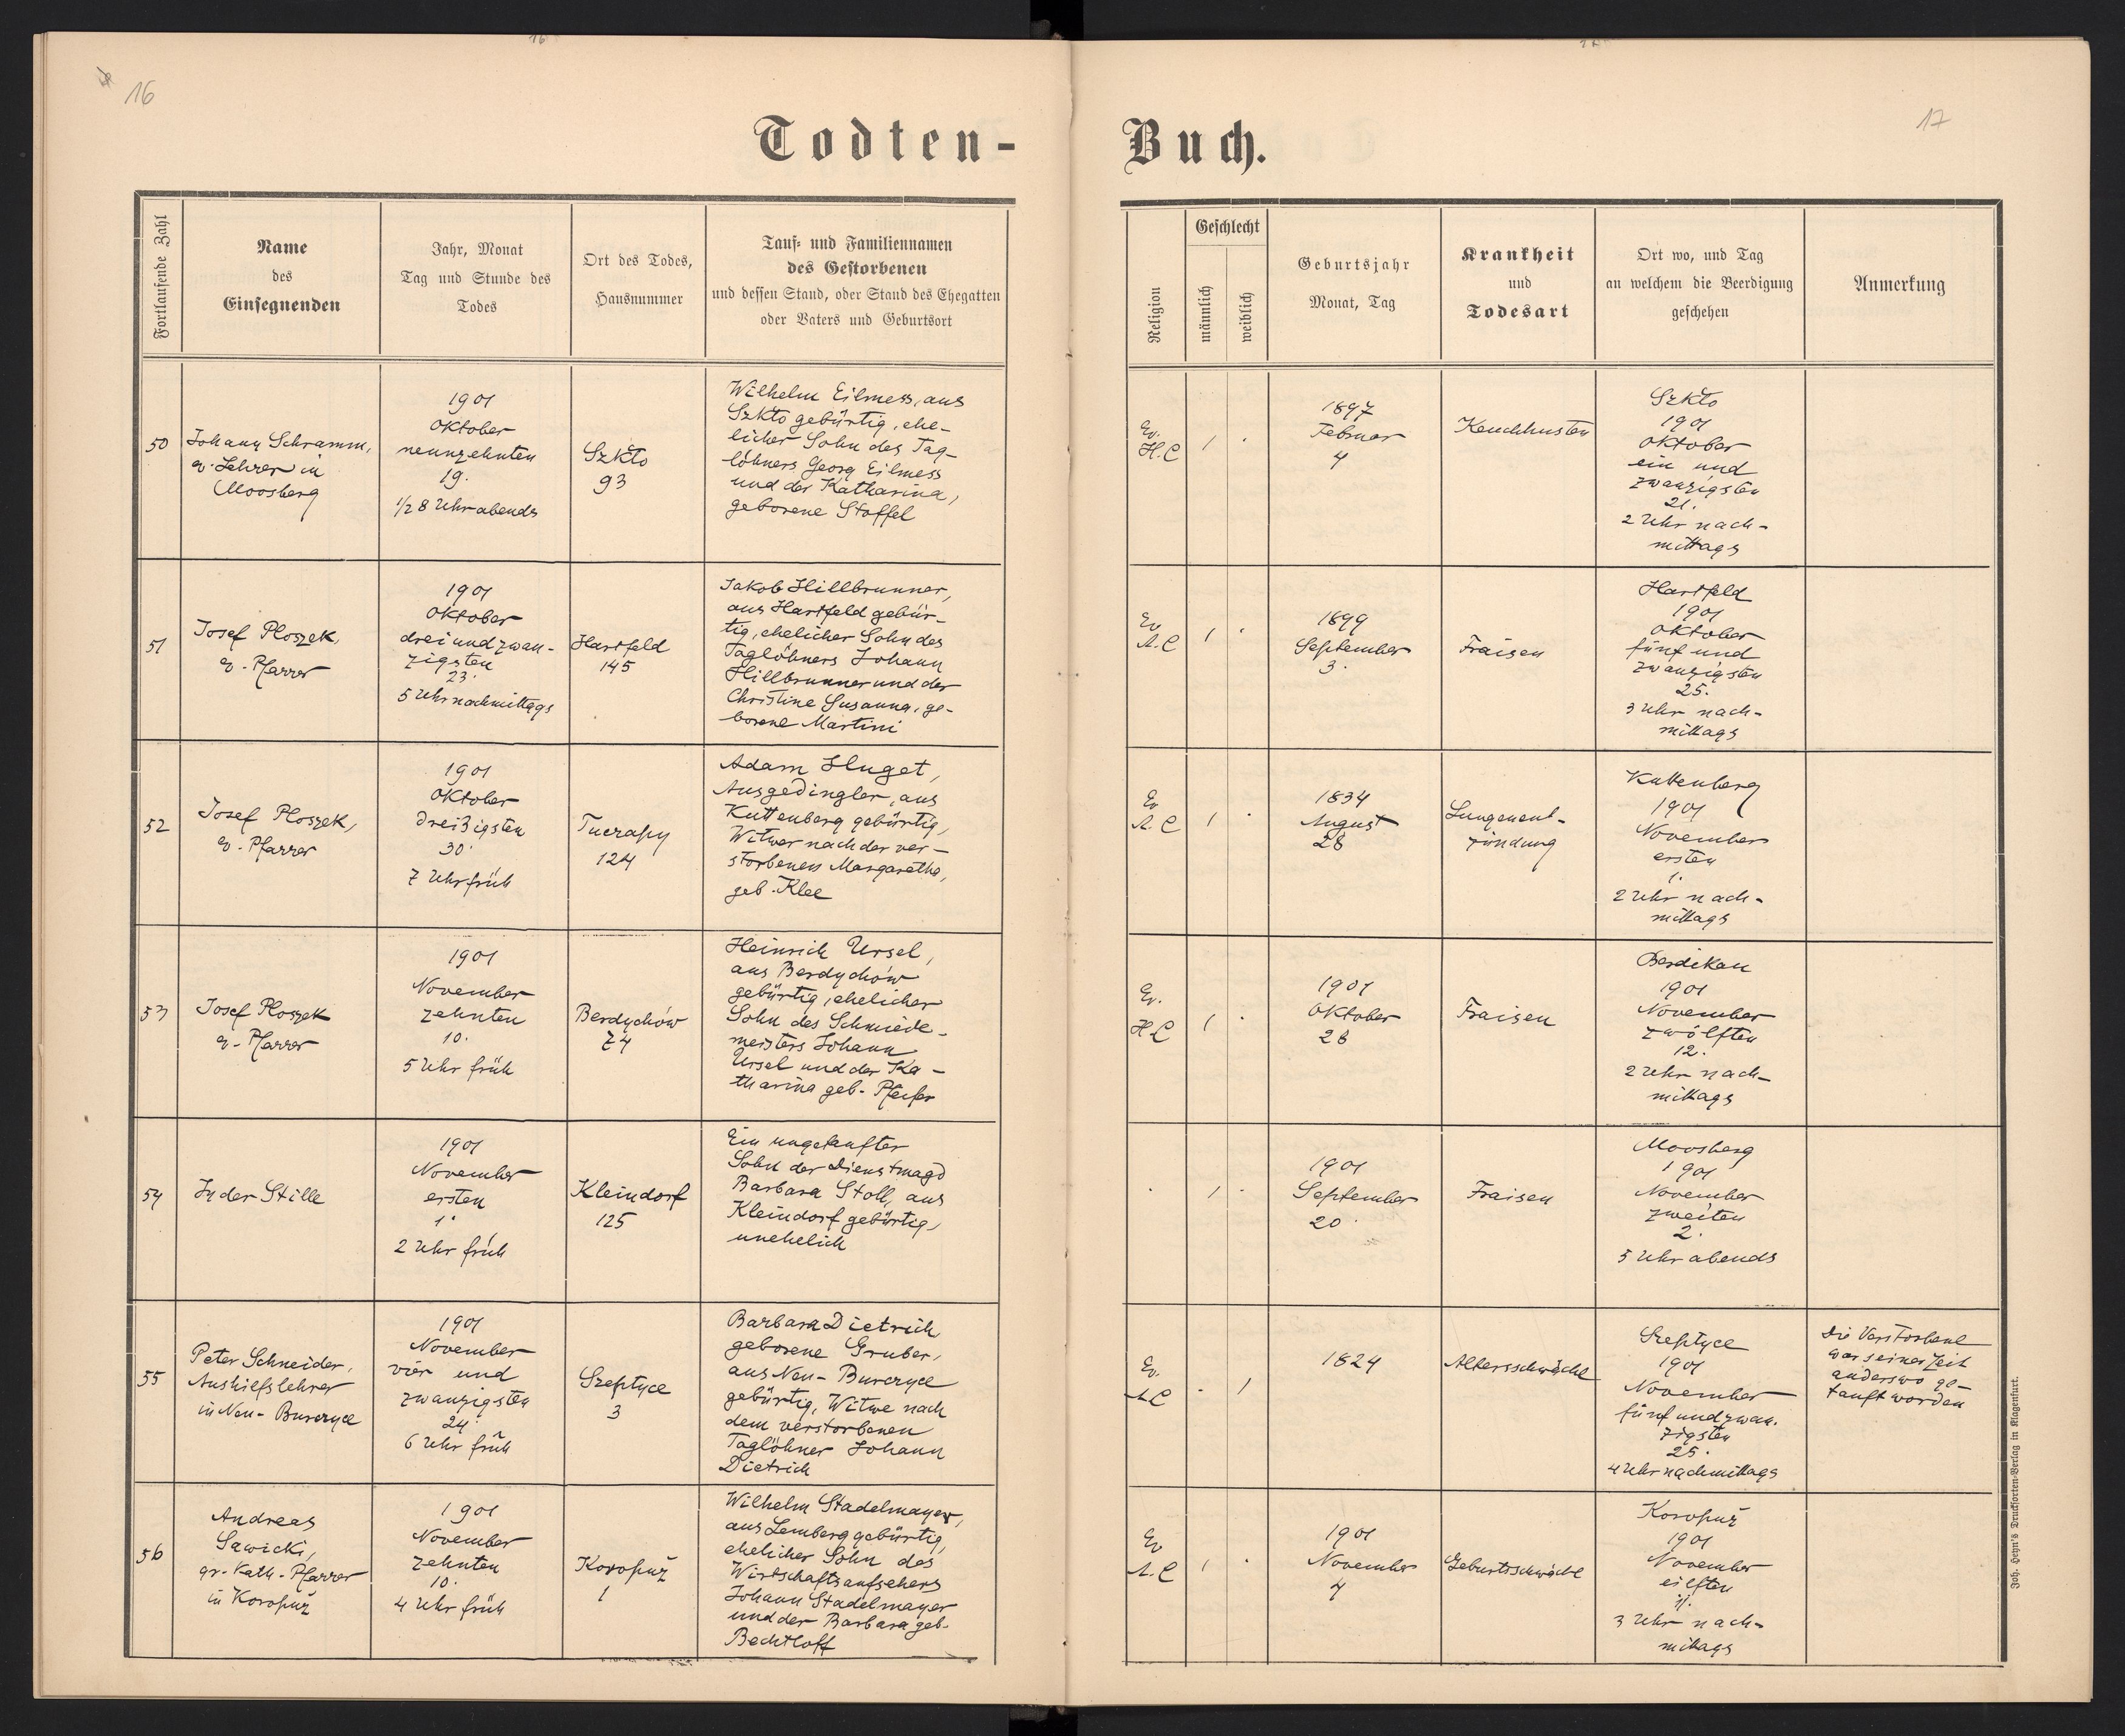 16
17
16
17
Todten-
Buch.
Fortlaufende Zahl
Name
des
Einsegnenden
Jahr, Monat
Tag und Stunde des
Todes
Ort des Todes,
Hausnummer
Tauf- und Familiennamen
des Gestorbenen
und dessen Stand, oder Stand des Ehegatten
oder Vaters und Geburtsort
Religion
Geschlecht
männlich
weiblich
Geburtsjahr
Monat, Tag
Krankheit
und
Todesart
Ort wo, und Tag
an welchem die Beerdigung
geschehen
Anmerkung
50
Johann Schramm,
ev. Lehrer in
Moosberg
1901
Oktober
neunzehnten
19.
1/2 8 Uhr abends
Szkto
93
Wilhelm Eilmess, aus
Szkto gebürtig, ehe-
licher Sohn des Tag-
löhners Georg Eilmess
und der Katharina,
geborene Stoffel
Ev.
H.C
1
1897
Februar
4
Keuchhusten
Szkto
1901
Oktober
ein und
zwanzigsten
21.
2 Uhr nach-
mittags
51
Josef Ploszek,
ev. Pfarrer
1901
Oktober
dreiundzwan-
zigsten
23.
5 Uhr nachmittags
Hartfeld
145
Jakob Hillbrunner,
aus Hartfeld gebür-
tig, ehelicher Sohn des
Taglöhners Johann
Hillbrunner und der
Christine Susanna, ge-
borene Martini
Ev
A.C
1
1899
September
3.
Fraisen
Hartfeld
1901
Oktober
fünf und
zwanzigsten
25.
3 Uhr nach-
mittags
52
Josef Ploszek,
ev. Pfarrer
1901
Oktober
dreißigsten
30.
7 Uhr früh
Tuczapy
124
Adam Huget,
Ausgedingler, aus
Kuttenberg gebürtig,
Witwer nach der ver-
storbenen Margarethe,
geb. Klee
Ev
A.C
1
1834
August
28
Lungenent-
zündung
Kuttenberg
1901
November
ersten
1.
2 Uhr nach-
mittags
53
Josef Ploszek
ev. Pfarrer
1901
November
zehnten
10.
5 Uhr früh
Berdychów
74
Heinrich Ursel,
aus Berdychów
gebürtig, ehelicher
Sohn des Schmiede-
meisters Johann
Ursel und der Ka-
tharina geb. Pfeifer
Ev.
H.C
1
1901
Oktober
28
Fraisen
Berdikau
1901
November
zwölften
12.
2 Uhr nach-
mittags
54
In der Stille
1901
November
ersten
1.
2 Uhr früh
Kleindorf
125
Ein ungetaufter
Sohn der Dienstmagd
Barbara Stoll, aus
Kleindorf gebürtig,
unehelich
1
1901
September
20.
Fraisen
Moosberg
1901
November
zweiten
2.
5 Uhr abends
55
Peter Schneider,
Aushilfslehrer
in Neu-Burczyce
1901
November
vier und
zwanzigsten
24.
6 Uhr früh
Szeptyce
3
Barbara Dietrich
geborene Gruber,
aus Neu-Burczyce
gebürtig, Witwe nach
dem verstorbenen
Taglöhner Johann
Dietrich
Ev.
A.C
1
1824
Altersschwäche
Szeptyce
1901
November
fünf und zwan-
zigsten
25.
4 Uhr nachmittags
Die Verstorbene
war seiner Zeit
anderswo ge-
tauft worden
56
Andreas
Sawicki,
gr.-Kath.-Pfarrer
in Koropuž
1901
November
zehnten
10.
4 Uhr früh
Koropuž
1
Wilhelm Stadelmayer,
aus Lemberg gebürtig,
ehelicher Sohn des
Wirtschaftsaufsehers
Johann Stadelmayer
und der Barbara geb.
Bechtloff
Ev
A.C
1
1901
November
4
Geburtsschwäche
Koropuž
1901
November
eilften
11.
3 Uhr nach-
mittags
Joh. Heyn's Drucksorten-Verlag in Klagenfurt.